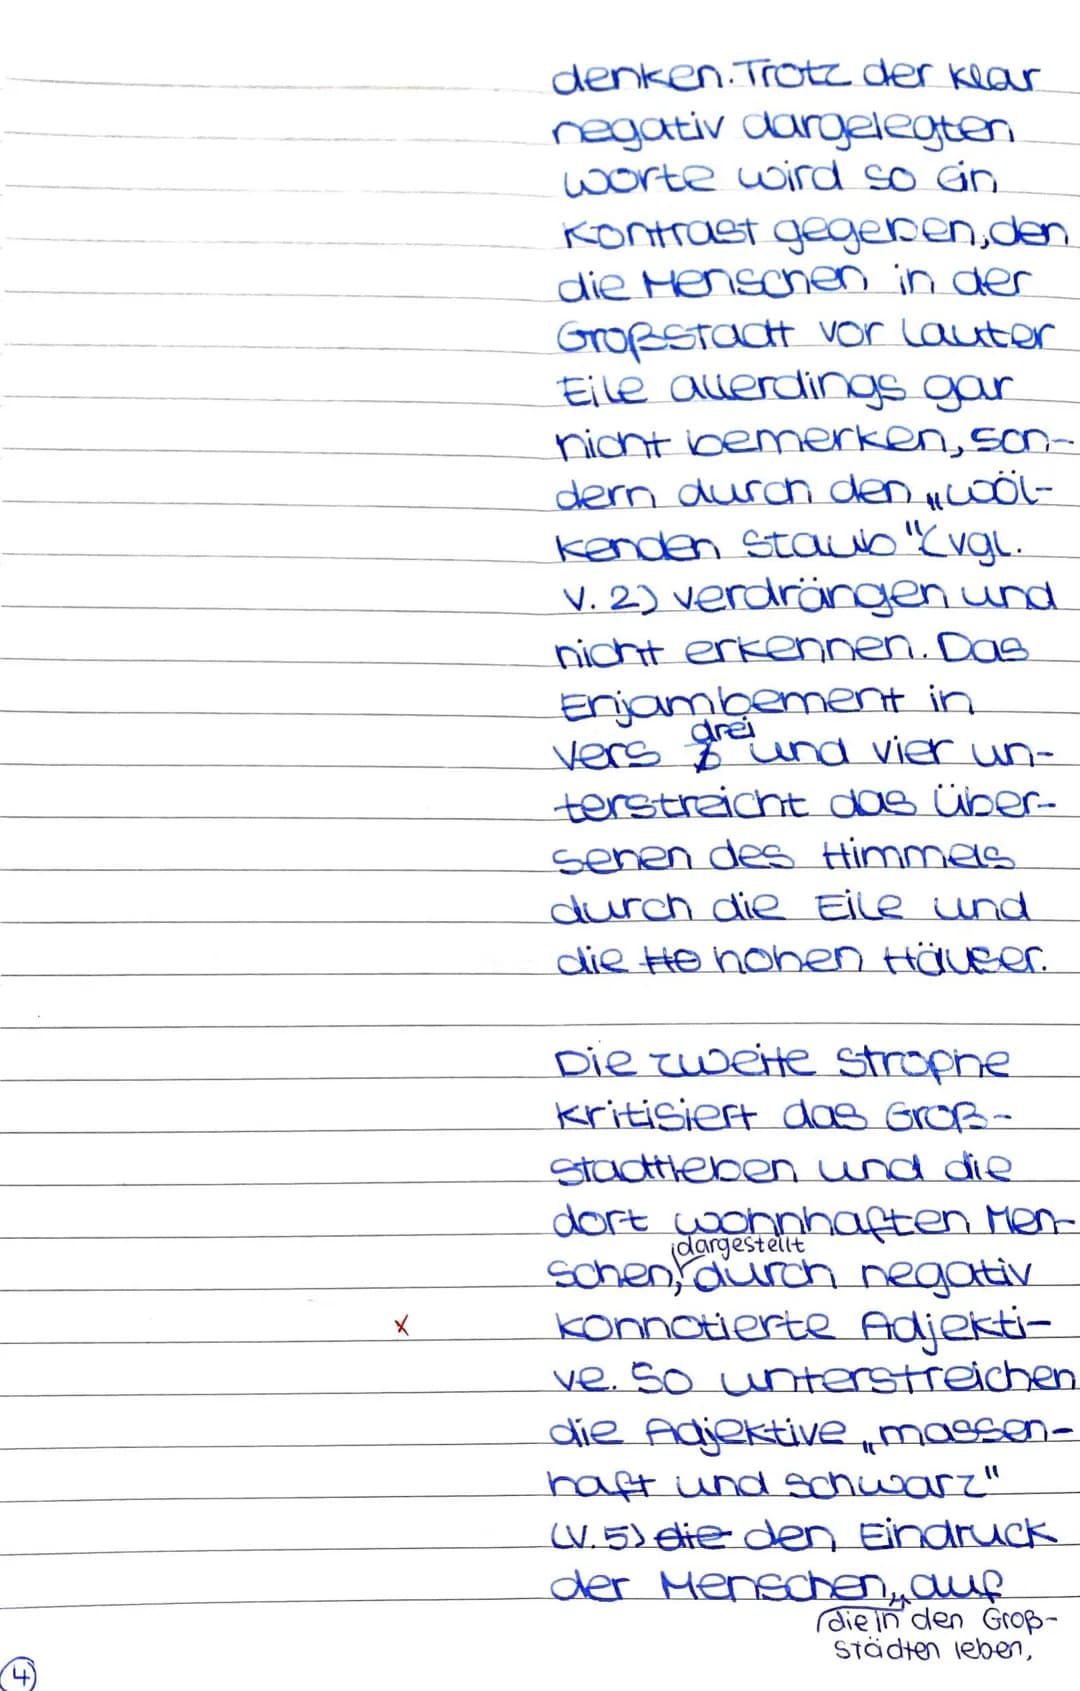 denken. Trotz der klar
negativ dargelegten
Worte wird so ein
Kontrast gegeben, den
die Menschen in der
Großstadt vor lauter
Eile allerdings gar
nicht bemerken, son-
dern durch den „wöl-
kenden Staub" (vgl.
V. 2) verdrängen und
nicht erkennen. Das
Enjambement in
Vers drei und vier un-
terstreicht das Über-
sehen des Himmels
durch die Eile und
die Ho hohen Häuser.
Die zweite Strophe
kritisiert das Groß-
stadtleben und die
dort wohnhaften Men-
dargestellt
schen, durch negativ
x
konnotierte Adjekti-
ve. So unterstreichen
die Adjektive „massen-
haft und schwarz"
(V. 5) die den Eindruck
der Menschen, auf
die in den Groß-
städten leben,
4